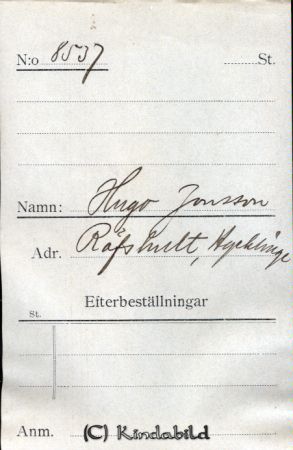 N:o 8537 St.
Namn: Hugo Jonsson
Adr. Räfshult,
Efterbeställningar
St.
Anm. (C) Kindabild